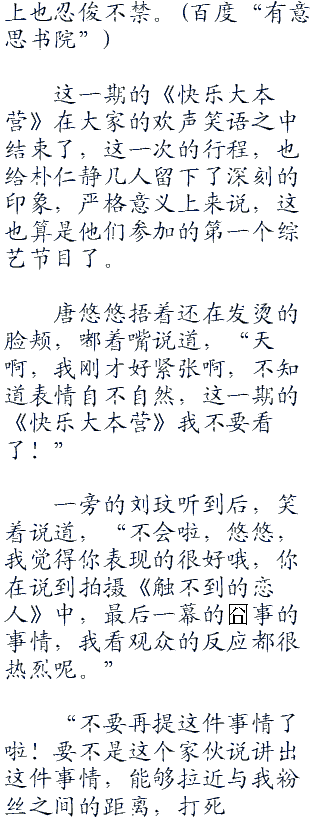 上也忍俊不禁。(百度“有意
思书院”)
这一期的《快乐大本
营》在大家的欢声笑语之中
结束了，这一次的行程，也
给朴仁静几人留下了深刻的
印象，严格意义上来说，这
也算是他们参加的第一个综
艺节目了。
唐悠悠捂着还在发烫的
脸颊，嘟着嘴说道，“天
啊，我刚才好紧张啊，不知
道表情自不自然，这一期的
《快乐大本营》我不要看
了！”
一旁的刘玟听到后，笑
着说道，“不会啦，悠悠，
我觉得你表现的很好哦，你
在说到拍摄《触不到的恋
人》中，最后一幕的囧事的
事情，我看观众的反应都很
热烈呢。”
“不要再提这件事情了
啦！要不是这个家伙说讲出
这件事情，能够拉近与我粉
丝之间的距离，打死